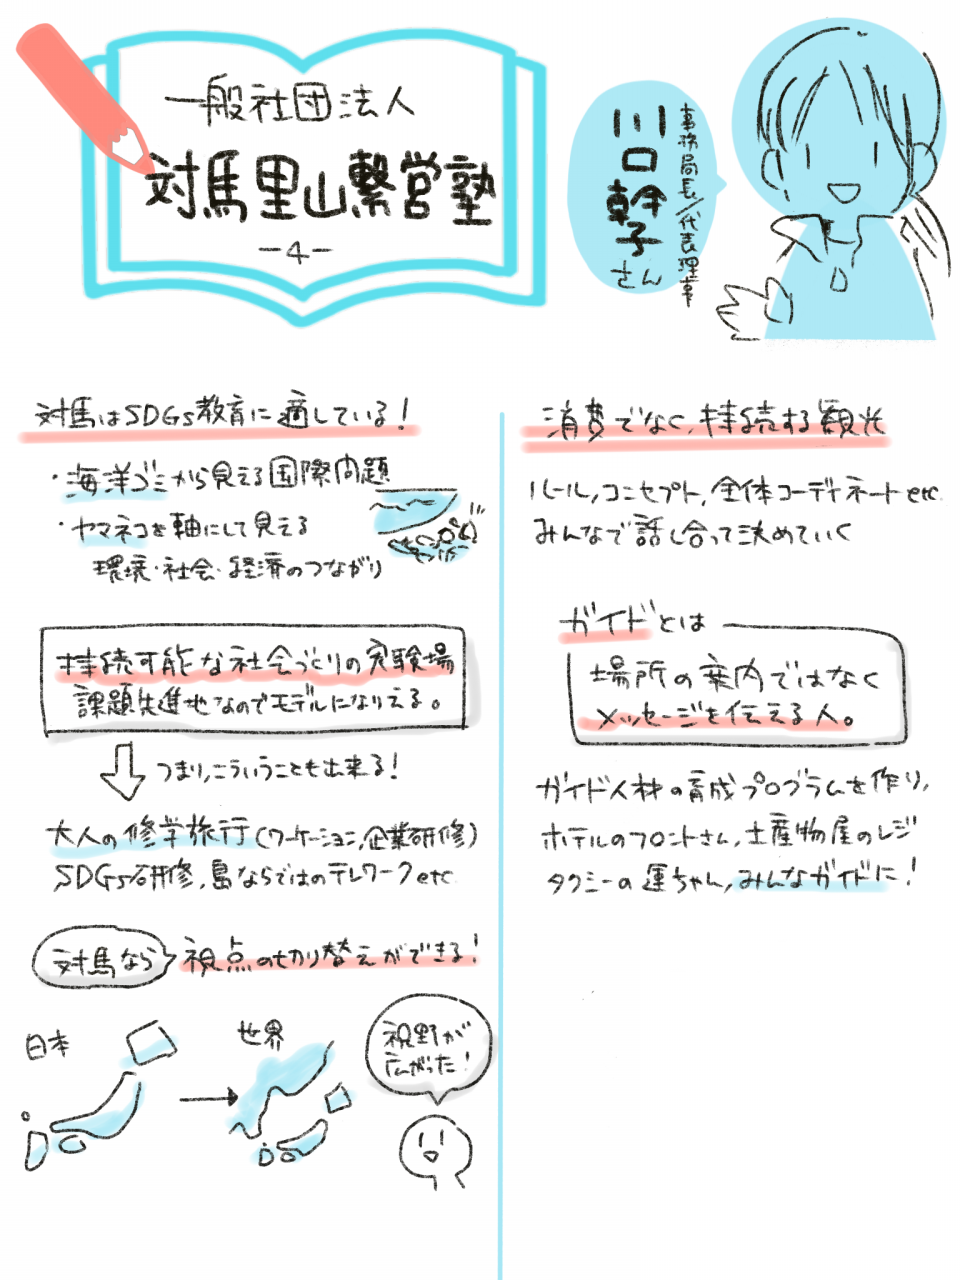 一般社団法人
対馬里山繋営塾
-4-
事務局長/代表理事
川口幹子さん
対馬はSDGs教育に適している!
・海洋ゴミから見える国際問題
・ヤマネコを軸にして見える
環境・社会・経済のつながり
持続可能な社会づくりの実験場
課題先進地なのでモデルになりえる。
つまり、こういうことも出来る!
大人の修学旅行(ワーケーション,企業研修)
SDGs研修,島ならではのテレワークetc
対馬なら
視点の切り替えができる!
日本
世界
視野が
広がった!
消費でなく、持続する観光
ルール,コンセプト,全体コーディネートetc
みんなで話し合って決めていく
ガイドとは
場所の案内ではなく
メッセージを伝える人。
ガイド人材の育成プログラムを作り,
ホテルのフロントさん,土産物屋のレジ
タクシーの運ちゃん,みんなガイドに!